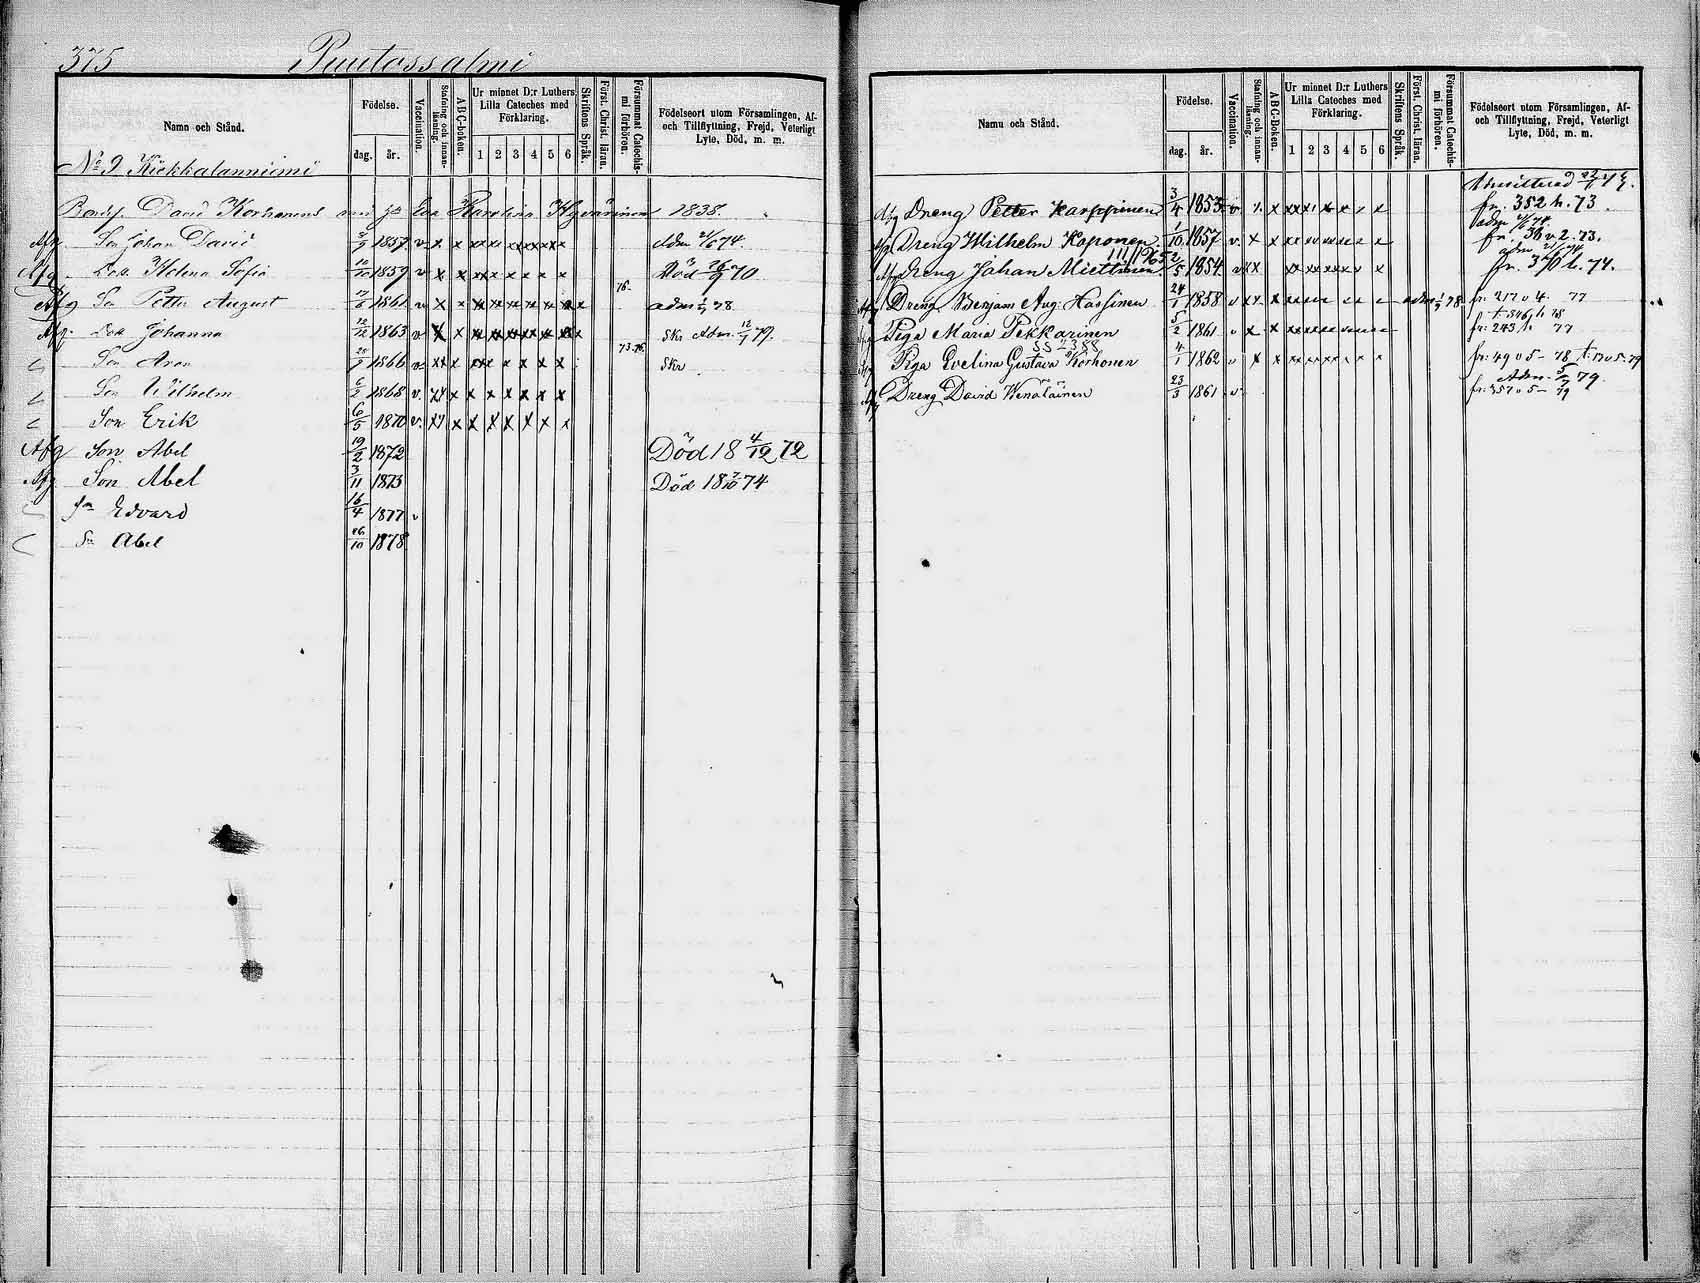 375 Puutossalmi
Namn och Stånd.
Födelse.
dag. år.
Vaccination.
Stafning och innan-läsning.
A B C-boken.
Ur minnet D:r Luthers Lilla Cateches med Förklaring.
1 2 3 4 5 6
Skriftens Språk.
Förståd. Christ. läran.
Försummat Catechismi förhören.
Födelseort utom Församlingen, Af- och Tillflyttning, Frejd, Veterligt Lyte, Död, m. m.
No 9 Kiekkalanniemi
David Korhonens Eva Karolina Hyvärinen 1838.
Afg Son Johan David 1857 v x x Adm 74.
Afg Dot. Helena Sofia 1859 v x x Död 26/9 70
Afg Son Petter August 1861 v x x 76. adm 78
Afg. Dot Johanna 12/12 1863 v x x Skr Adm. 12/7 79.
Son Aron 1866 v x x 73. 76. Skr
Son Wilhelm 6/2 1868 v. x x
Son Erik 6/5 1870 v. x x
Afg Son Abel 19/2 1872 Död 18 4/12 72
Afg Son Abel 3/11 1873 Död 18 7/10 74
Son Edvard 16/4 1877 v
Sn Abel 26/10 1878
Namn och Stånd.
Födelse.
dag. år.
Vaccination.
Stafning och innan-läsning.
A B C-Boken.
Ur minnet D:r Luthers Lilla Cateches med Förklaring.
1 2 3 4 5 6
Skriftens Språk.
Först. Christ. läran.
Försummat Catechismi förhören.
Födelseort utom Församlingen, Af- och Tillflyttning, Frejd, Veterligt Lyte, Död, m. m.
Afg Dreng Petter Karppinen 3/4 1853 v x fr. 382 h. 73.
Afg Dreng Wilhelm Koponen 1/10 1857 v. x x fr. 36 v. 2. 73.
Afg Dreng Johan Miettinen 2/5 1854 v x x fr. 370 h. 74.
Afg Dreng Benjam Aug. Hassinen 24/1 1858 v x x adm 78 fr. 217 v 4. 77
Afg Piga Maria Pekkarinen 5/2 1861 v x x fr. 243 h. 77
SS 2388
Afg Piga Evelina Gustava Korhonen 4/1 1862 v x x fr. 49 v 5 - 78
Afg Dreng David Wenäläinen 23/3 1861 v. Adm. 79.